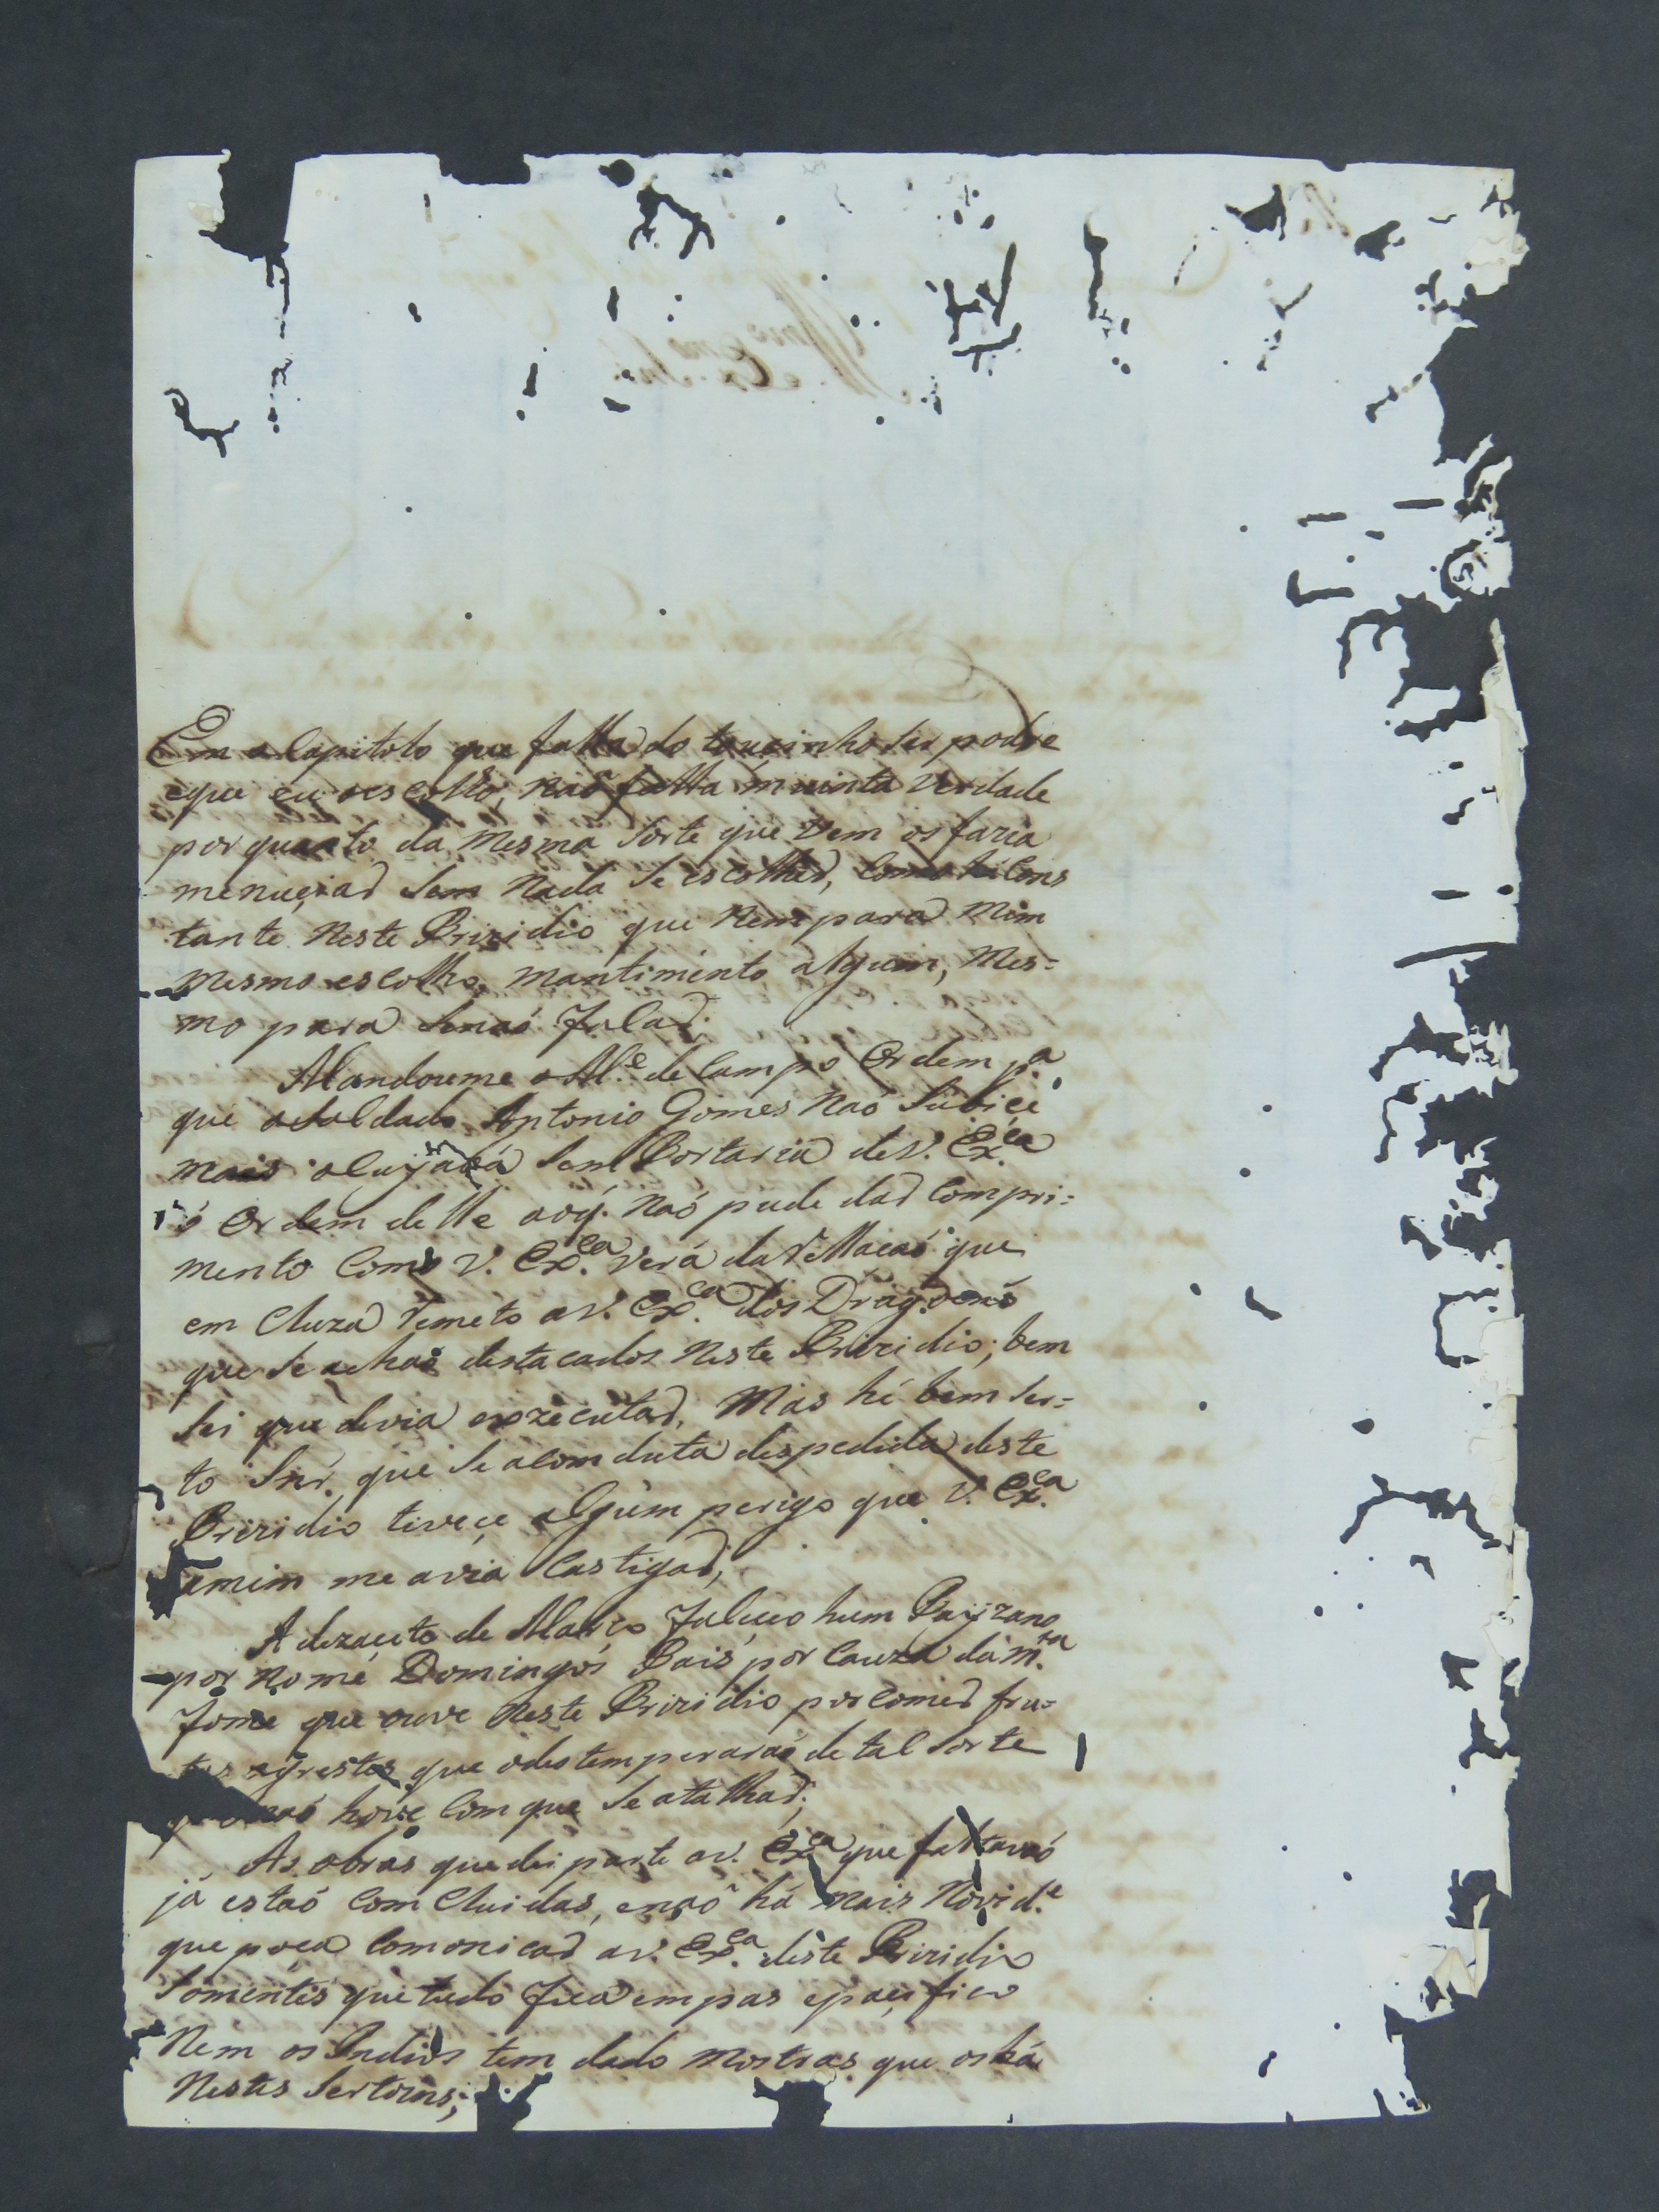 Em o Capitolo que falla do toucinho ser podre
eque eu oescolho, naõ falla muinta verdade
por quanto da mesma sorte que vem os faria
menuçiar sem nada se escolher, como hé Cons
tante neste Prizidio que nem para mim
mesmo escolho mantimento algum, mes=
mo para senaó falar;
Mandoume o M.e de Campo Ordem p.a
que o Soldado Antonio Gomes naó Subiçe
mais oCuyabá sem Portaria de V. Ex.ca
ó Ordem delle aoq. naó pude dar Compri=
mento Como V. Ex.ca verá da rellacaó que
em Cluza remeto a V. Ex.ca dos Dragoens
que Se achaó destacados neste Prizidio; bem
sei que devia exzecutar, mas hé bem ser=
to Snr. que Se aComduta despedida deste
Prizidio tiveçe algum perigo que V. Ex.ca
amim me avia Castigar;
A dezaçeto de Março faleceo hum Payzano
por nome Domingos Pais por Cauza da m.ta
fome que ouve neste Prizidio por Comer fru=
tas agrestes que odestemperaraó de tal sorte
naó hove Com que Se atalhar;
As obras que dei parte a V. Ex.ca que faltavaó
já estaó Com Cluidas, enaõ há mais Novid.e
que poça Comonicar a V. Ex.ca deste Prizidio
Somentes que tudo fica em pas epaçifico
Nem os Indios tem dado mostras que os há
Nestes Sertoins;